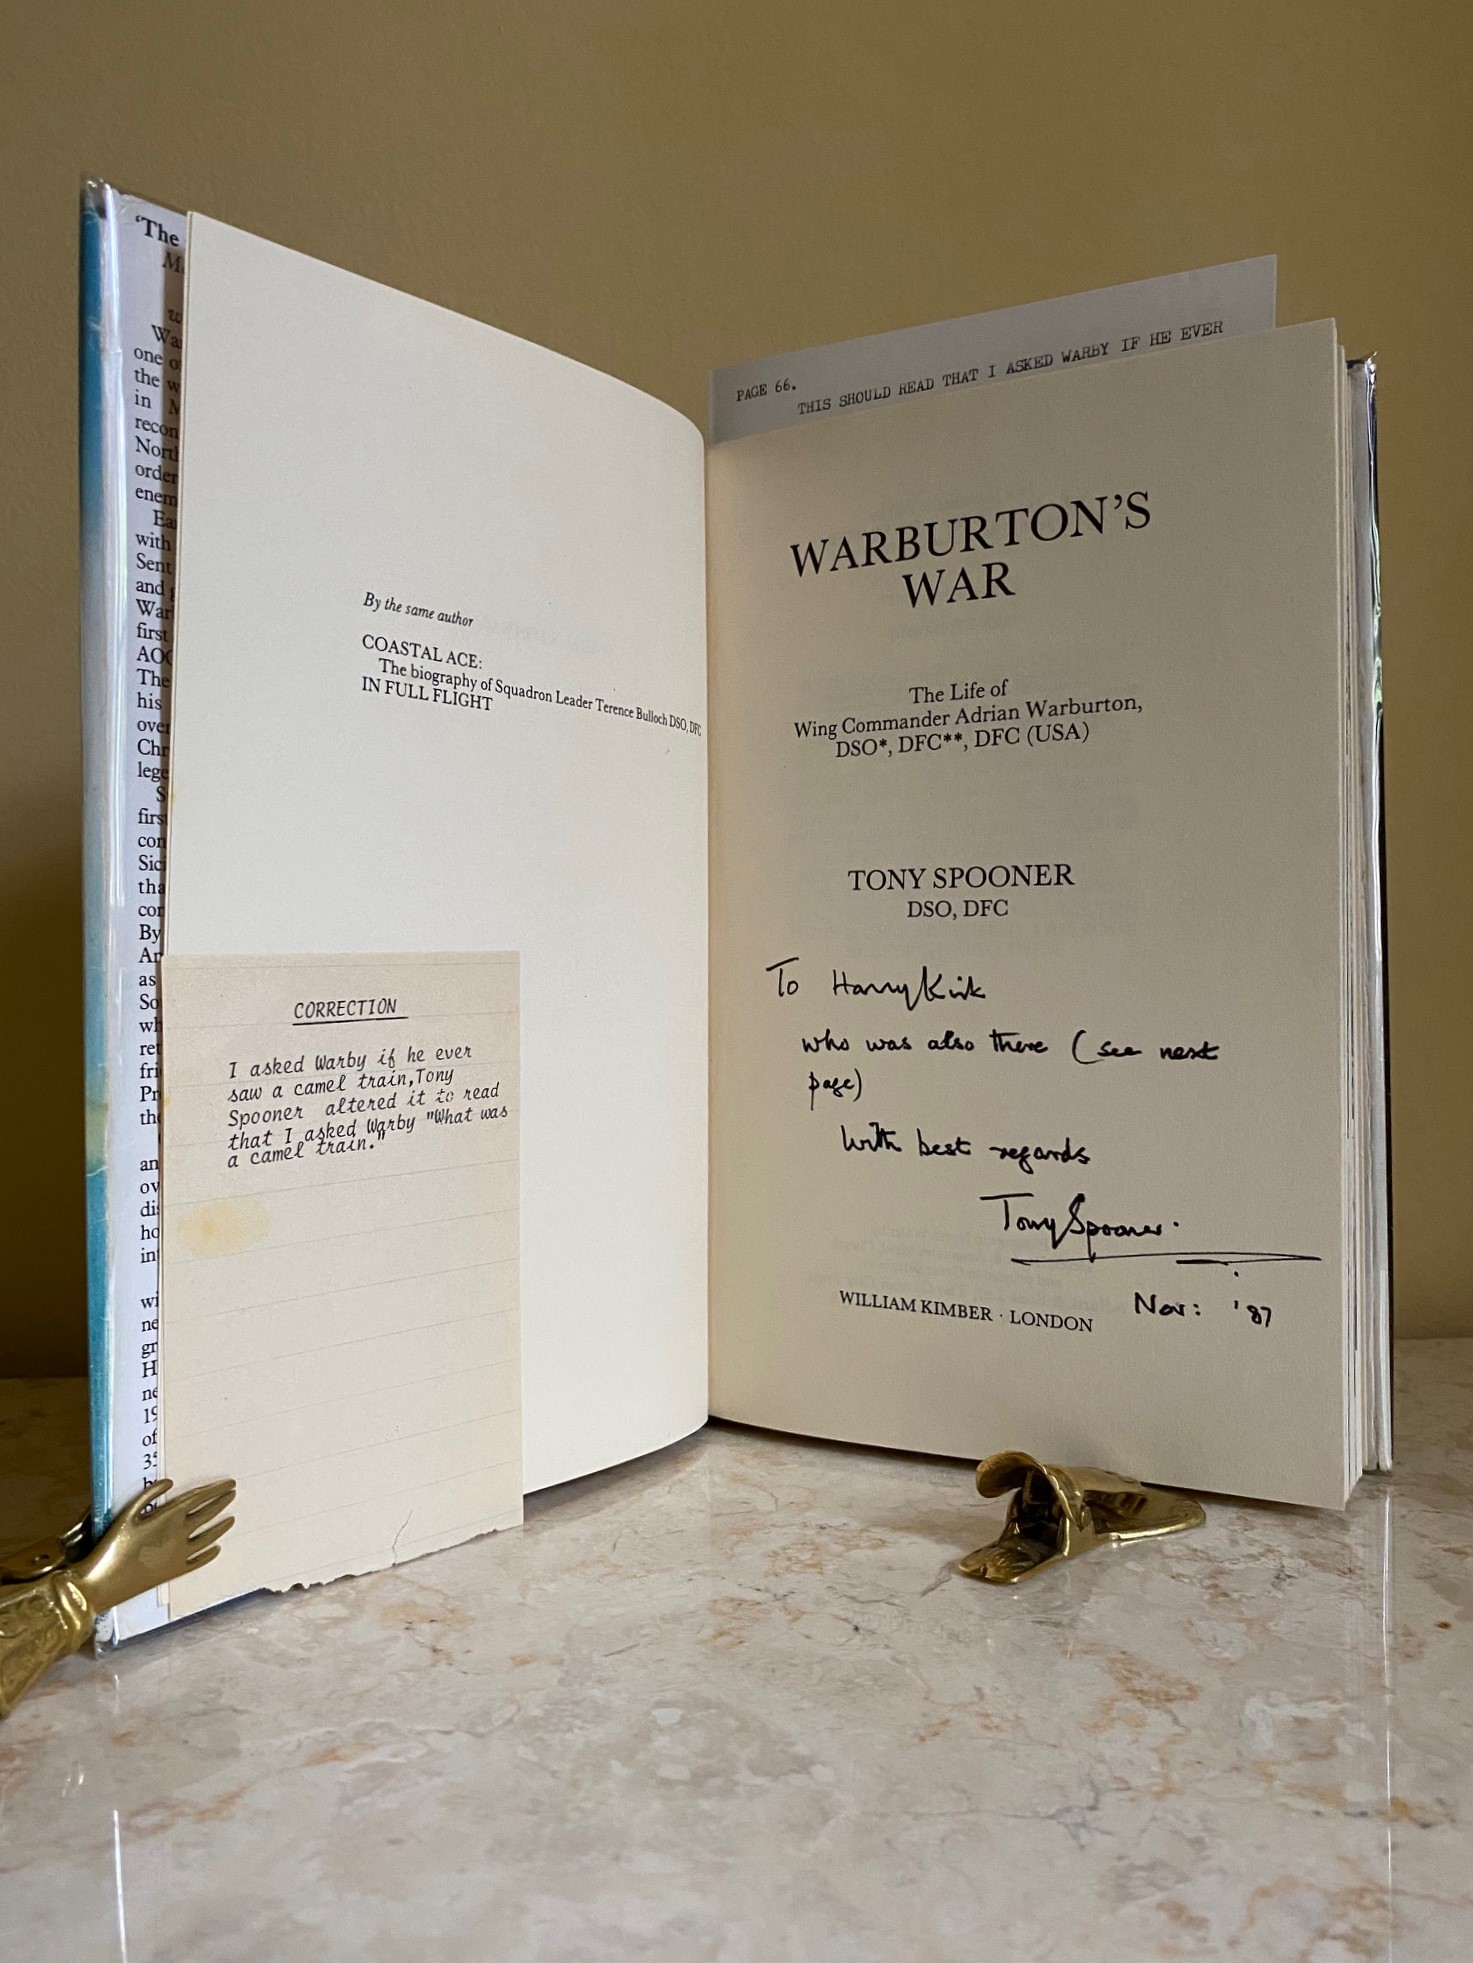 'The
one
the
in
North
order
enem
with
Sent
and
first
The
his
over
lege
By the same author
COASTAL ACE:
The biography of Squadron Leader Terence Bulloch DSO, DFC
IN FULL FLIGHT
CORRECTION
I asked Warby if he ever
saw a camel train,Tony
Spooner altered it to read
that I asked Warby "What was
a camel train."
PAGE 66.
THIS SHOULD READ THAT I ASKED WARBY IF HE EVER
WARBURTON'S
WAR
The Life of
Wing Commander Adrian Warburton,
DSO*, DFC**, DFC (USA)
TONY SPOONER
DSO, DFC
To Harry Kirk
who was also there (see next
page)
With best regards
Tony Spooner.
WILLIAM KIMBER · LONDON
Nov: '87